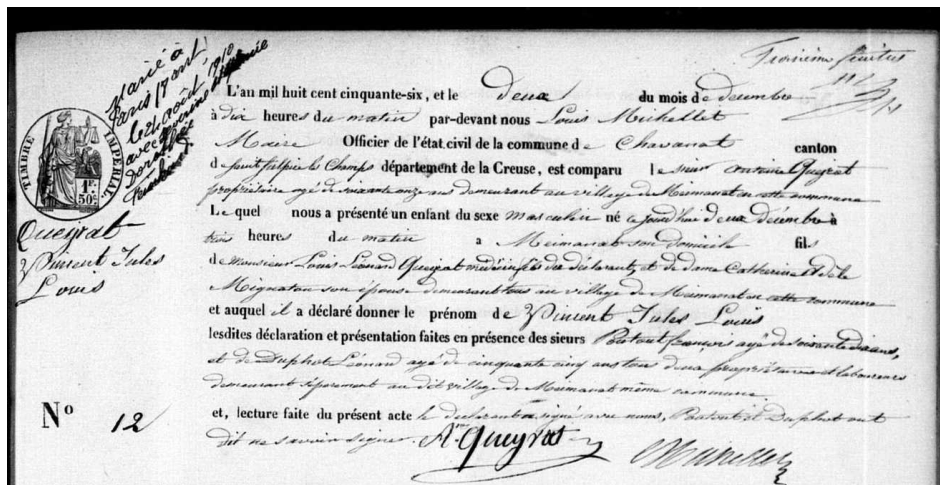 Troisième feuillet
Marié à
Paris 17e arrt
le 21 août 1910
avec
TIMBRE IMPÉRIAL
1 F.
50 C.
Queyrat
Vincent Jules
Louis
No 12
L'an mil huit cent cinquante-six, et le deux du mois de décembre
à dix heures du matin par-devant nous Louis Michellet
Maire Officier de l'état civil de la commune de Chavanat canton
de département de la Creuse, est comparu le sieur Antoine Queyrat
propriétaire agé de soixante onze ans demeurant au village de Meimanat en cette commune
Lequel nous a présenté un enfant du sexe masculin né ce jourd'hui deux décembre à
trois heures du matin à Meimanat son domicile fils
de monsieur Louis Léonard Queyrat médecin fils du déclarant, et de dame Catherine
Mignaton son épouse demeurant tous au village de Meimanat en cette commune
et auquel il a déclaré donner le prénom de Vincent Jules Louis
lesdites déclaration et présentation faites en présence des sieurs Patout françois agé de soixante ans,
et de Duphot Léonard agé de cinquante cinq ans tous deux propriétaires et laboureurs
demeurant séparément au dit village de Meimanat même commune.
et, lecture faite du présent acte le déclarant a signé avec nous, Patout et Duphot ont
dit ne savoir signer.
Queyrat